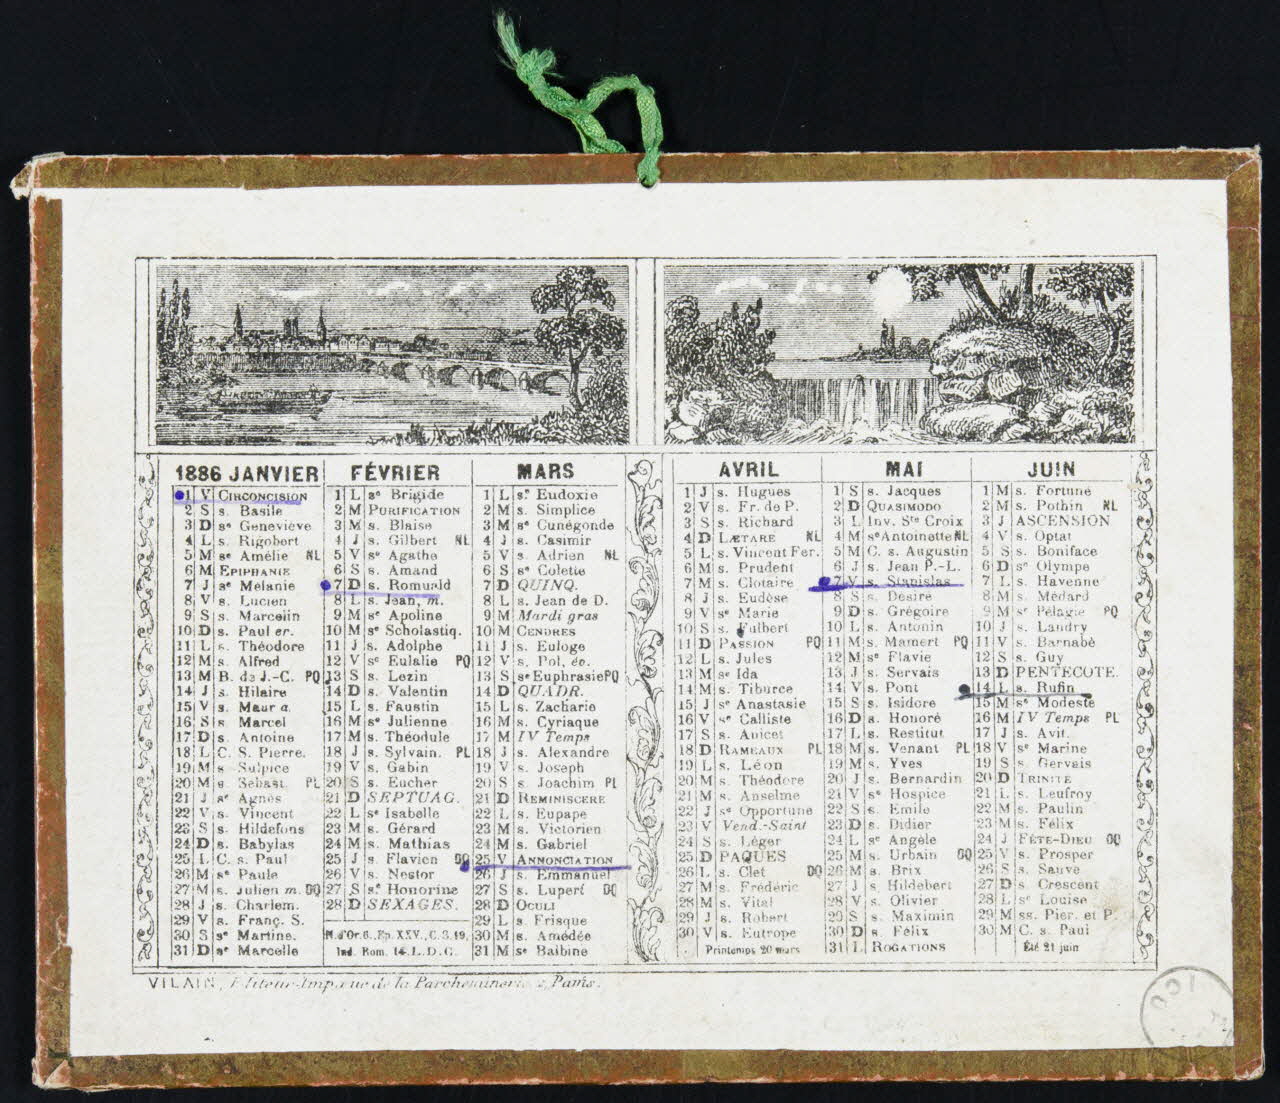 1886 JANVIER
1 V CIRCONCISION
2 S s. Basile
3 D sᵉ Geneviève
4 L s. Rigobert
5 M sᵉ Amélie NL
6 M EPIPHANIE
7 J sᵉ Mélanie
8 V s. Lucien
9 S s. Marcelin
10 D s. Paul er.
11 L s. Théodore
12 M s. Alfred
13 M B. de J.-C. PQ
14 J s. Hilaire
15 V s. Maur a.
16 S s. Marcel
17 D s. Antoine
18 L C. S. Pierre.
19 M s. Sulpice
20 M s. Sébast. PL
21 J sᵉ Agnès
22 V s. Vincent
23 S s. Hildefons
24 D s. Babylas
25 L C. s. Paul
26 M sᵉ Paule
27 M s. Julien m. DQ
28 J s. Charlem.
29 V s. Franç. S.
30 S sᵉ Martine.
31 D sᵉ Marcelle
FÉVRIER
1 L sᵉ Brigide
2 M PURIFICATION
3 M s. Blaise
4 J s. Gilbert NL
5 V sᵉ Agathe
6 S s. Amand
7 D s. Romuald
8 L s. Jean, m.
9 M sᵉ Apoline
10 M sᵉ Scholastiq.
11 J s. Adolphe
12 V sᵉ Eulalie PQ
13 S s. Lezin
14 D s. Valentin
15 L s. Faustin
16 M sᵉ Julienne
17 M s. Théodule
18 J s. Sylvain. PL
19 V s. Gabin
20 S s. Eucher
21 D SEPTUAG.
22 L sᵉ Isabelle
23 M s. Gérard
24 M s. Mathias
25 J s. Flavien DQ
26 V s. Nestor
27 S sᵉ Honorine
28 D SEXAGES.
N. d'Or. 6., Ep. XXV., C. S. 19,
Ind. Rom. 14. L. D. C.
MARS
1 L sᵉ Eudoxie
2 M s. Simplice
3 M sᵉ Cunégonde
4 J s. Casimir
5 V s. Adrien NL
6 S sᵉ Colette
7 D QUINQ.
8 L s. Jean de D.
9 M Mardi gras
10 M CENDRES
11 J s. Euloge
12 V s. Pol, év.
13 S sᵉ Euphrasie PQ
14 D QUADR.
15 L s. Zacharie
16 M s. Cyriaque
17 M IV Temps
18 J s. Alexandre
19 V s. Joseph
20 S s. Joachim PL
21 D REMINISCERE
22 L s. Eupape
23 M s. Victorien
24 M s. Gabriel
25 V ANNONCIATION
26 J s. Emmanuel
27 S s. Lupert DQ
28 D OCULI
29 L s. Frisque
30 M s. Amédée
31 M sᵉ Balbine
AVRIL
1 J s. Hugues
2 V s. Fr. de P.
3 S s. Richard
4 D LÆTARE NL
5 L s. Vincent Fer.
6 M s. Prudent
7 M s. Clotaire
8 J s. Eudèse
9 V sᵉ Marie
10 S s. Fulbert
11 D PASSION PQ
12 L s. Jules
13 M sᵉ Ida
14 M s. Tiburce
15 J sᵉ Anastasie
16 V sᵉ Calliste
17 S s. Anicet
18 D RAMEAUX PL
19 L s. Léon
20 M s. Théodore
21 M s. Anselme
22 J sᵉ Opportune
23 V Vend.-Saint
24 S s. Léger
25 D PAQUES
26 L s. Clet DQ
27 M s. Frédéric
28 M s. Vital
29 J s. Robert
30 V s. Eutrope
Printemps 20 mars
MAI
1 S s. Jacques
2 D QUASIMODO
3 L Inv. Sᵗᵉ Croix
4 M sᵉ Antoinette NL
5 M C. s. Augustin
6 J s. Jean P.-L.
7 V s. Stanislas
8 S s. Désiré
9 D s. Grégoire
10 L s. Antonin
11 M s. Mamert PQ
12 M sᵉ Flavie
13 J s. Servais
14 V s. Pont
15 S s. Isidore
16 D s. Honoré
17 L s. Restitut
18 M s. Venant PL
19 M s. Yves
20 J s. Bernardin
21 V sᵉ Hospice
22 S s. Emile
23 D s. Didier
24 L sᵉ Angèle
25 M s. Urbain DQ
26 M s. Brix
27 J s. Hildebert
28 V s. Olivier
29 S s. Maximin
30 D s. Félix
31 L ROGATIONS
JUIN
1 M s. Fortuné
2 M s. Pothin NL
3 J ASCENSION
4 V s. Optat
5 S s. Boniface
6 D sᵉ Olympe
7 L s. Havenne
8 M s. Médard
9 M sᵉ Pélagie PQ
10 J s. Landry
11 V s. Barnabé
12 S s. Guy
13 D PENTECOTE.
14 L s. Rufin
15 M sᵉ Modeste
16 M IV Temps PL
17 J s. Avit.
18 V sᵉ Marine
19 S s. Gervais
20 D TRINITÉ
21 L s. Leufroy
22 M s. Paulin
23 M s. Félix
24 J FÊTE-DIEU DQ
25 V s. Prosper
26 S s. Sauve
27 D s. Crescent
28 L sᵉ Louise
29 M ss. Pier. et P.
30 M C. s. Paul
Été 21 juin
VILAIN, Editeur-Imp. rue de la Parcheminerie, Paris.